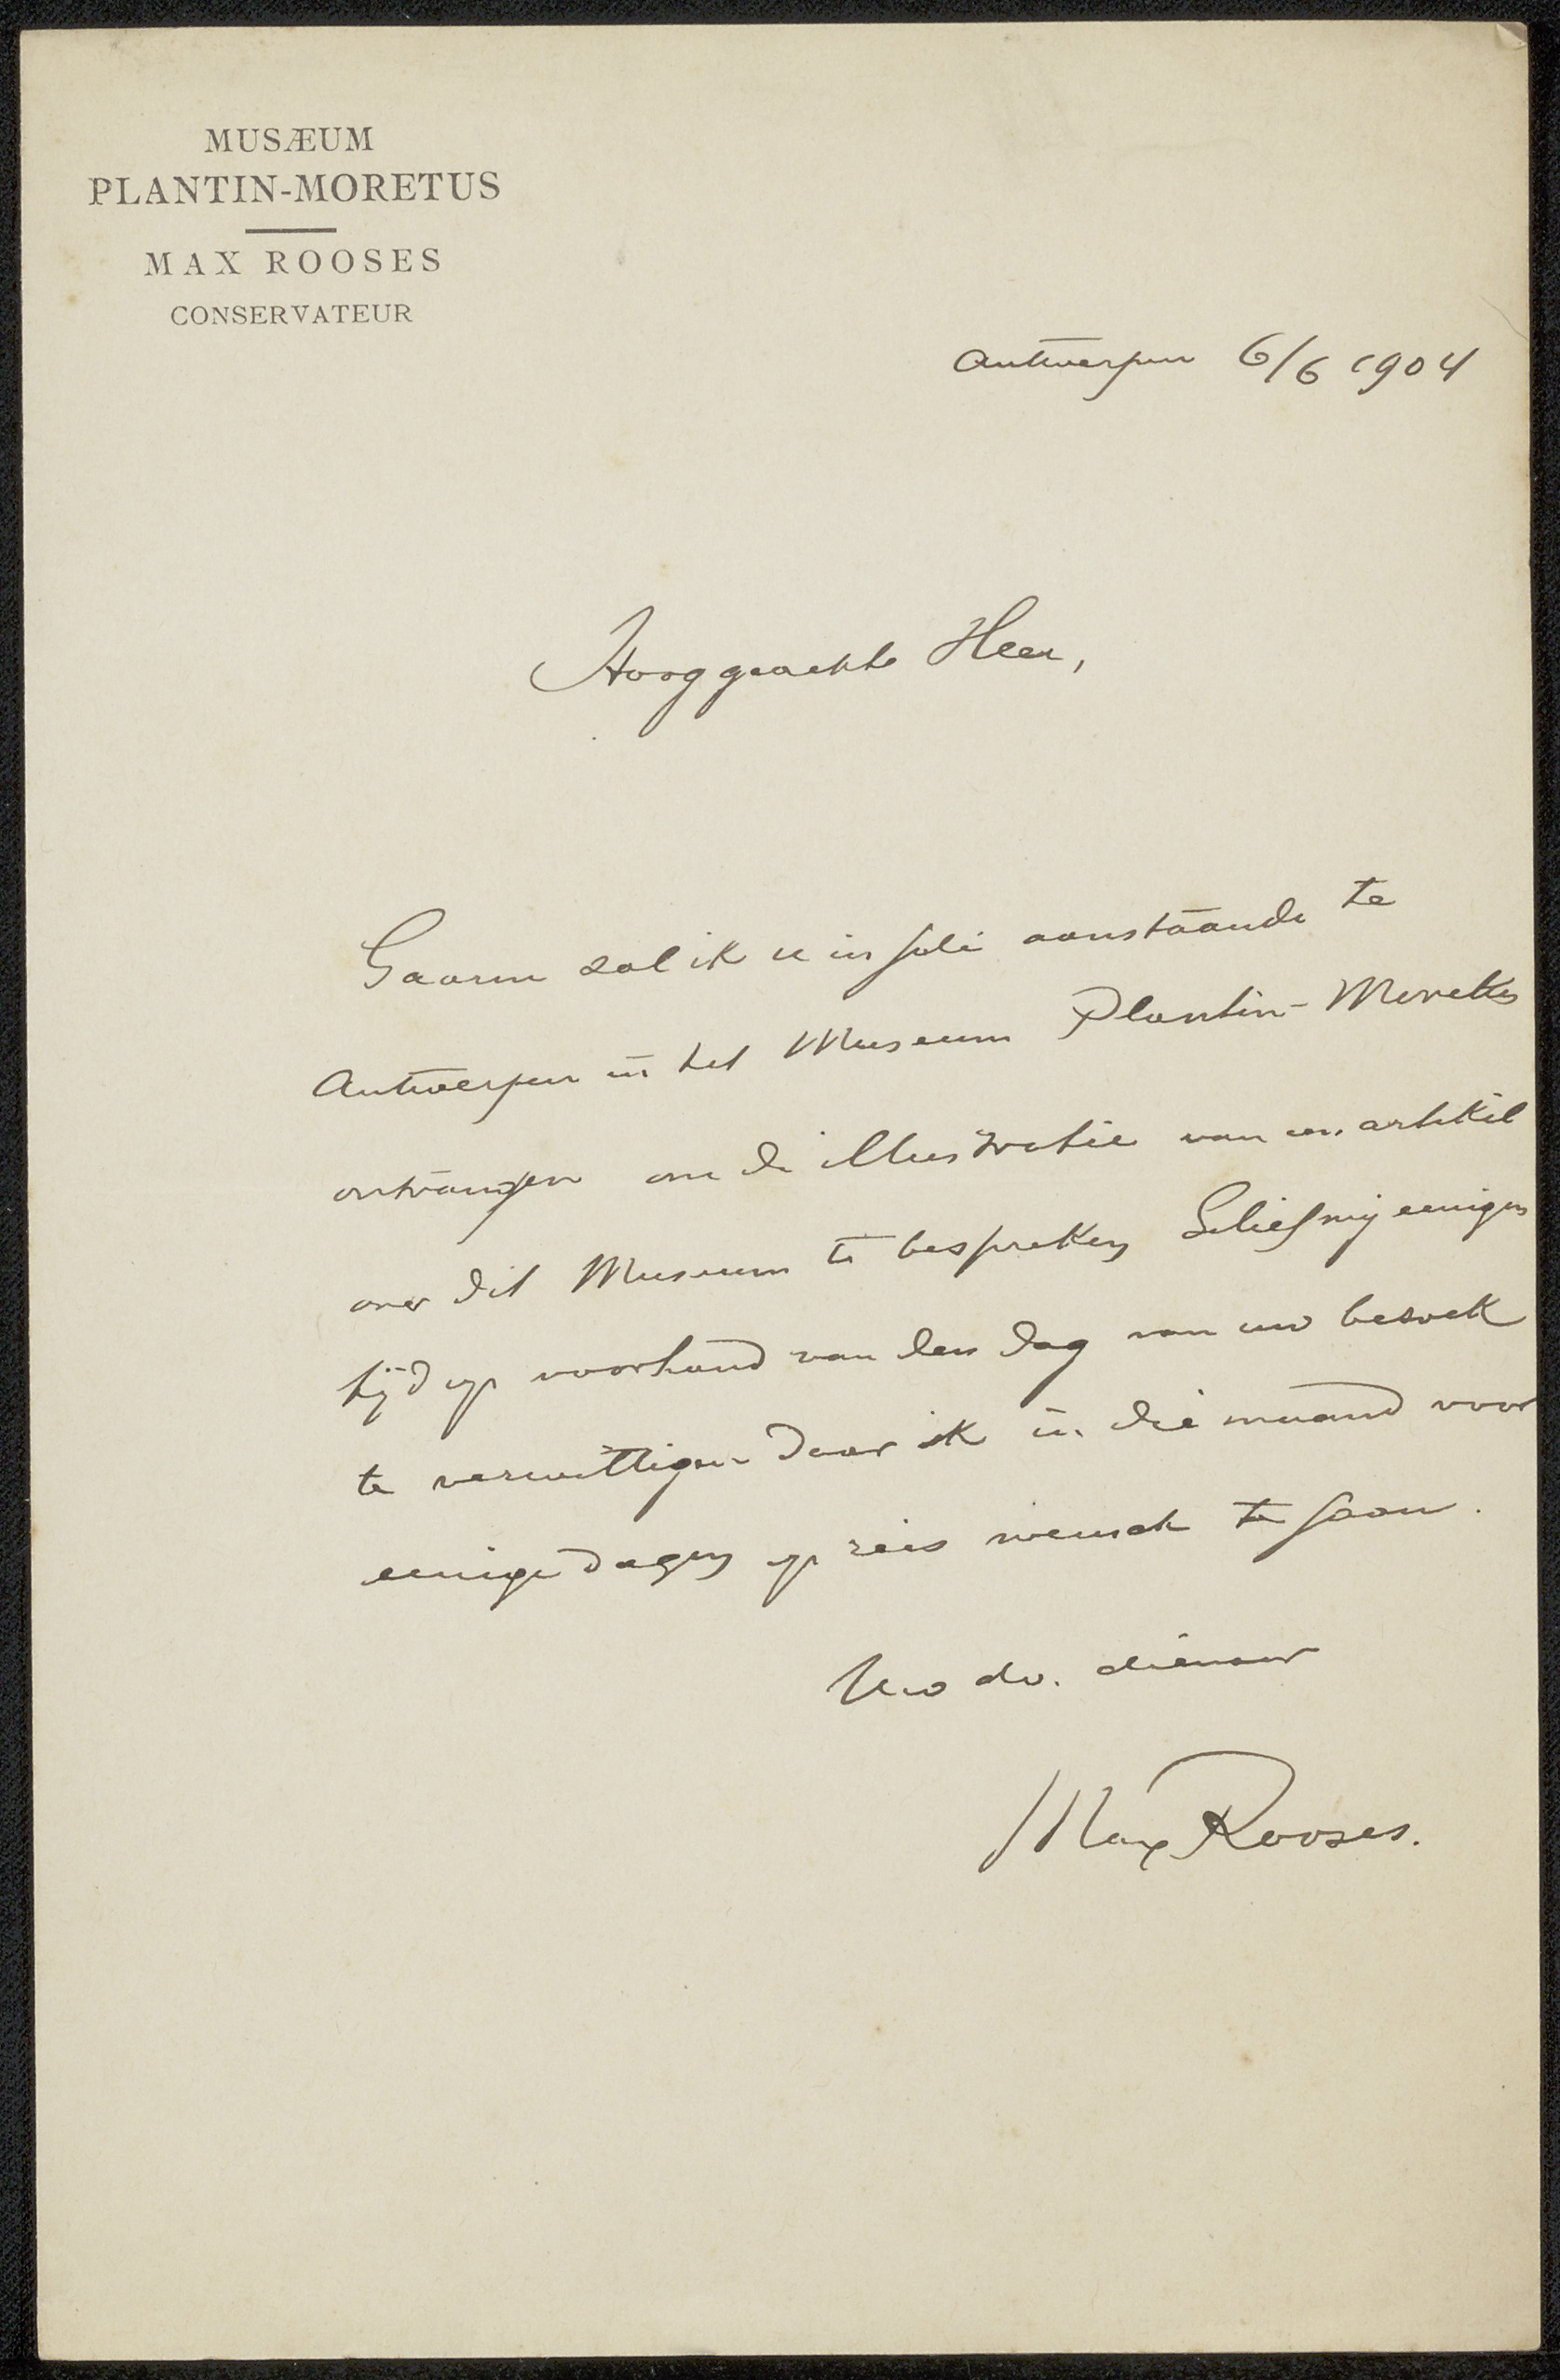 MUSÆUM
PLANTIN-MORETUS
MAX ROOSES
CONSERVATEUR
Antwerpen 6/6 1904
Hooggeachte Heer,
Gaarne zal ik u in juli aanstaande te
Antwerpen in het Museum Plantin-Moretus
ontvangen om de illustratie van een artikel
over dit Museum te bespreken Gelief mij eenigen
tijd op voorhand van den dag van uw bezoek
te verwittigen daar ik in die maand voor
eenige dagen op reis wensch te gaan.
Uw dv. dienaar
Max Rooses.